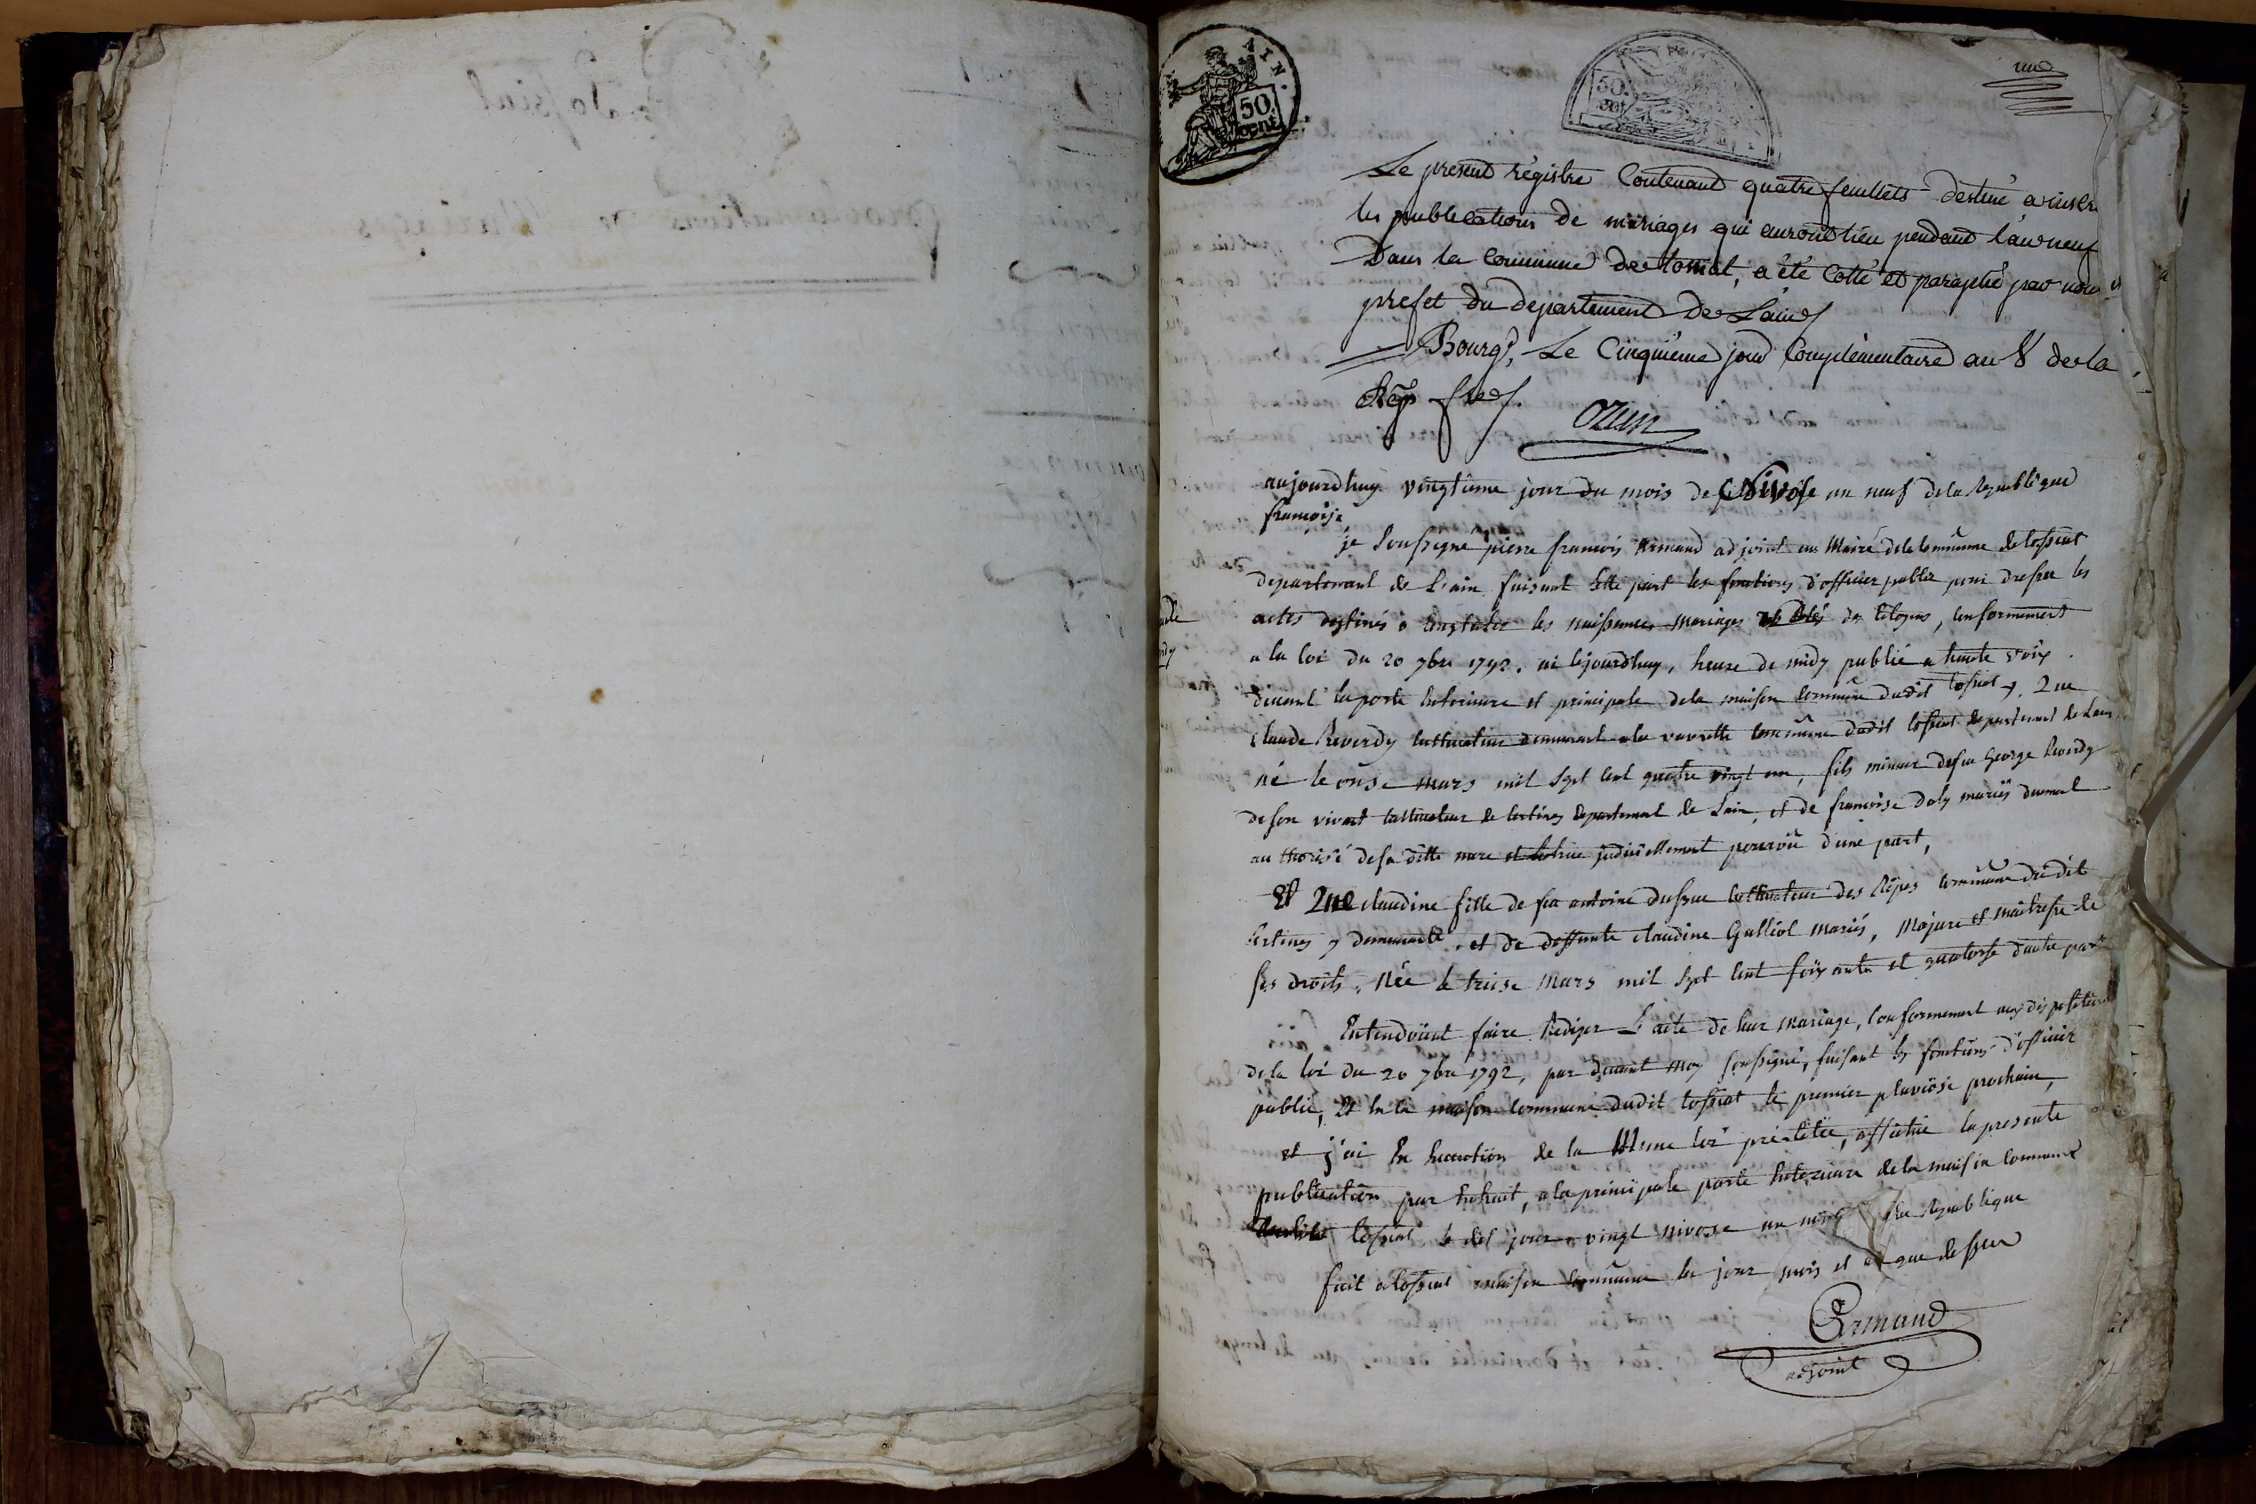 AIN.
50.
cent.
50.
cent
une
Le present régistre Contenant quatre feuillets destiné a inscre
les publications de mariages qui auront lieu pendant l'an neuf
Dans la Commune de tossiat, a été Cotté et paraphé par nous
prefet du departement de L'ain
Bourg, Le Cinquieme jour Complémentaire an 8 de la
Rep. fse.
Ozun
aujourdhuy vingtieme jour du mois de Nivose an neuf de la Republique
françoise
je soussigné pierre françois Armand adjoint au Maire de la Commune de tossiat
departemant de L'ain faisant cette part les fonctions d'officier public pour dresser les
actes destinés a constater les naissances mariages et décés des Citoyens, conformement
a la loi du 20 7bre 1792. ai cejourdhuy, heure de midy publié a haute voix
devant la porte Exterieure et principale de la maison commune dudit tossiat. Que
Claude Reverdy Cultivateur demeurant a la vavrette commune dudit tossiat departemant de L'ain
né le onse mars mil sept cent quatre vingt un, fils mineur de feu George Reverdy
de son vivant cultivateur de Certines departemant de L'ain, et de françoise mariés
authorisé de sa ditte mere judiciellement d'une part,
Et Que claudine fille de feu antoine cultivateur des Rippes commune dudit
Certines y demeurante. et de deffunte claudine Galliot mariés, Majeure et maitresse de
ses droits. Née le treise Mars mil sept cent soixante et quatorse d'autre part
Entendoient faire Rediger L'acte de leur Mariage, conformement aux dispositions
de la loi du 20 7bre 1792, par devant moy soussigné, faisant les fonctions d'officier
public, Et en la maison commune dudit tossiat le premier pluviose prochain,
et j'ai En Execution de la Meme loi précitée, affiché la presente
publication par Extrait, a la principale porte Exterieure de la maison commune
tossiat le dit jour vingt nivose an neuf Republique
fait a tossiat maison commune les jour mois et an que dessus
Armand
adjoint